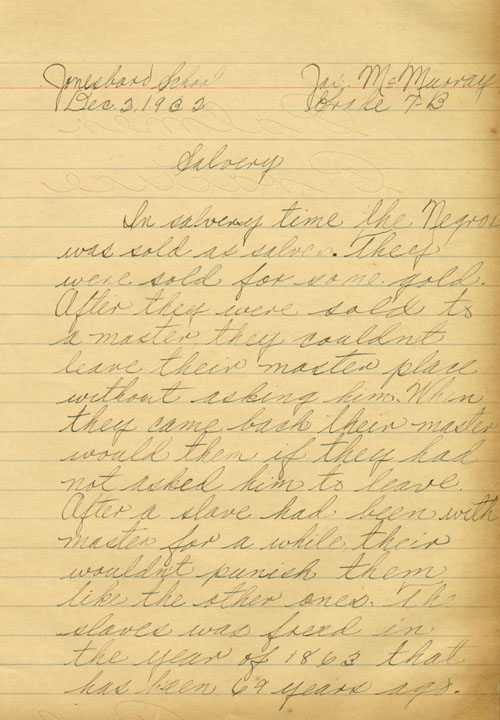 Jonesboro School Jas. McMurray
Dec. 2, 1932 Grade 7-B
Salvery
In salvery time the Negros
was sold as salves. They
were sold for some gold.
After they were sold to
a master they couldnt
leave their master place
without asking him. When
they came back their master
would them if they had
not asked him to leave.
After a slave had been with
master for a while their
wouldn't punish them
like the other ones. The
slaves was freed in
the year of 1863 that
has been 69 years ago.